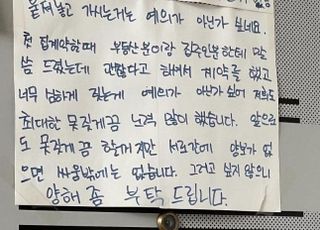 붙여놓고 가시는게는 예의가 아닌가 보네요.
첫 집계약할때 부동산분이랑 집주인분한테 말
씀 드렸는데 괜찮다고 하셔서 계약을 했고
너무 심하게 짖는게 예의가 아닌가 싶어 저희도
최대한 못짖게끔 노력 많이 했습니다. 앞으로
도 못짖게끔 할꺼지만 서로간에 양보가 없
으면 싸움밖에는 없습니다. 그러고 싶지 않으니
양해 좀 부탁 드립니다.